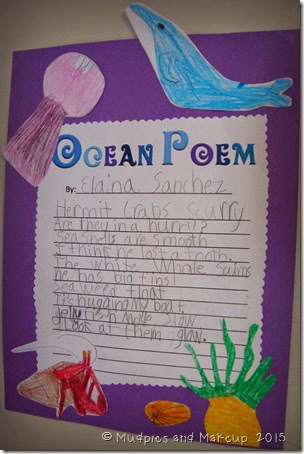 OCEAN POEM
By: Elaina Sanchez
Hermit Crabs Scurry
Are they in a hurrey?
Sea shells are smooth
I think he lost a tooth.
The white Whale Swims
he has big fins!
Sea weed float
It's hugging my boat
Jelly fish move slow
Look at them glow.
© Mudpies and Makeup 2015